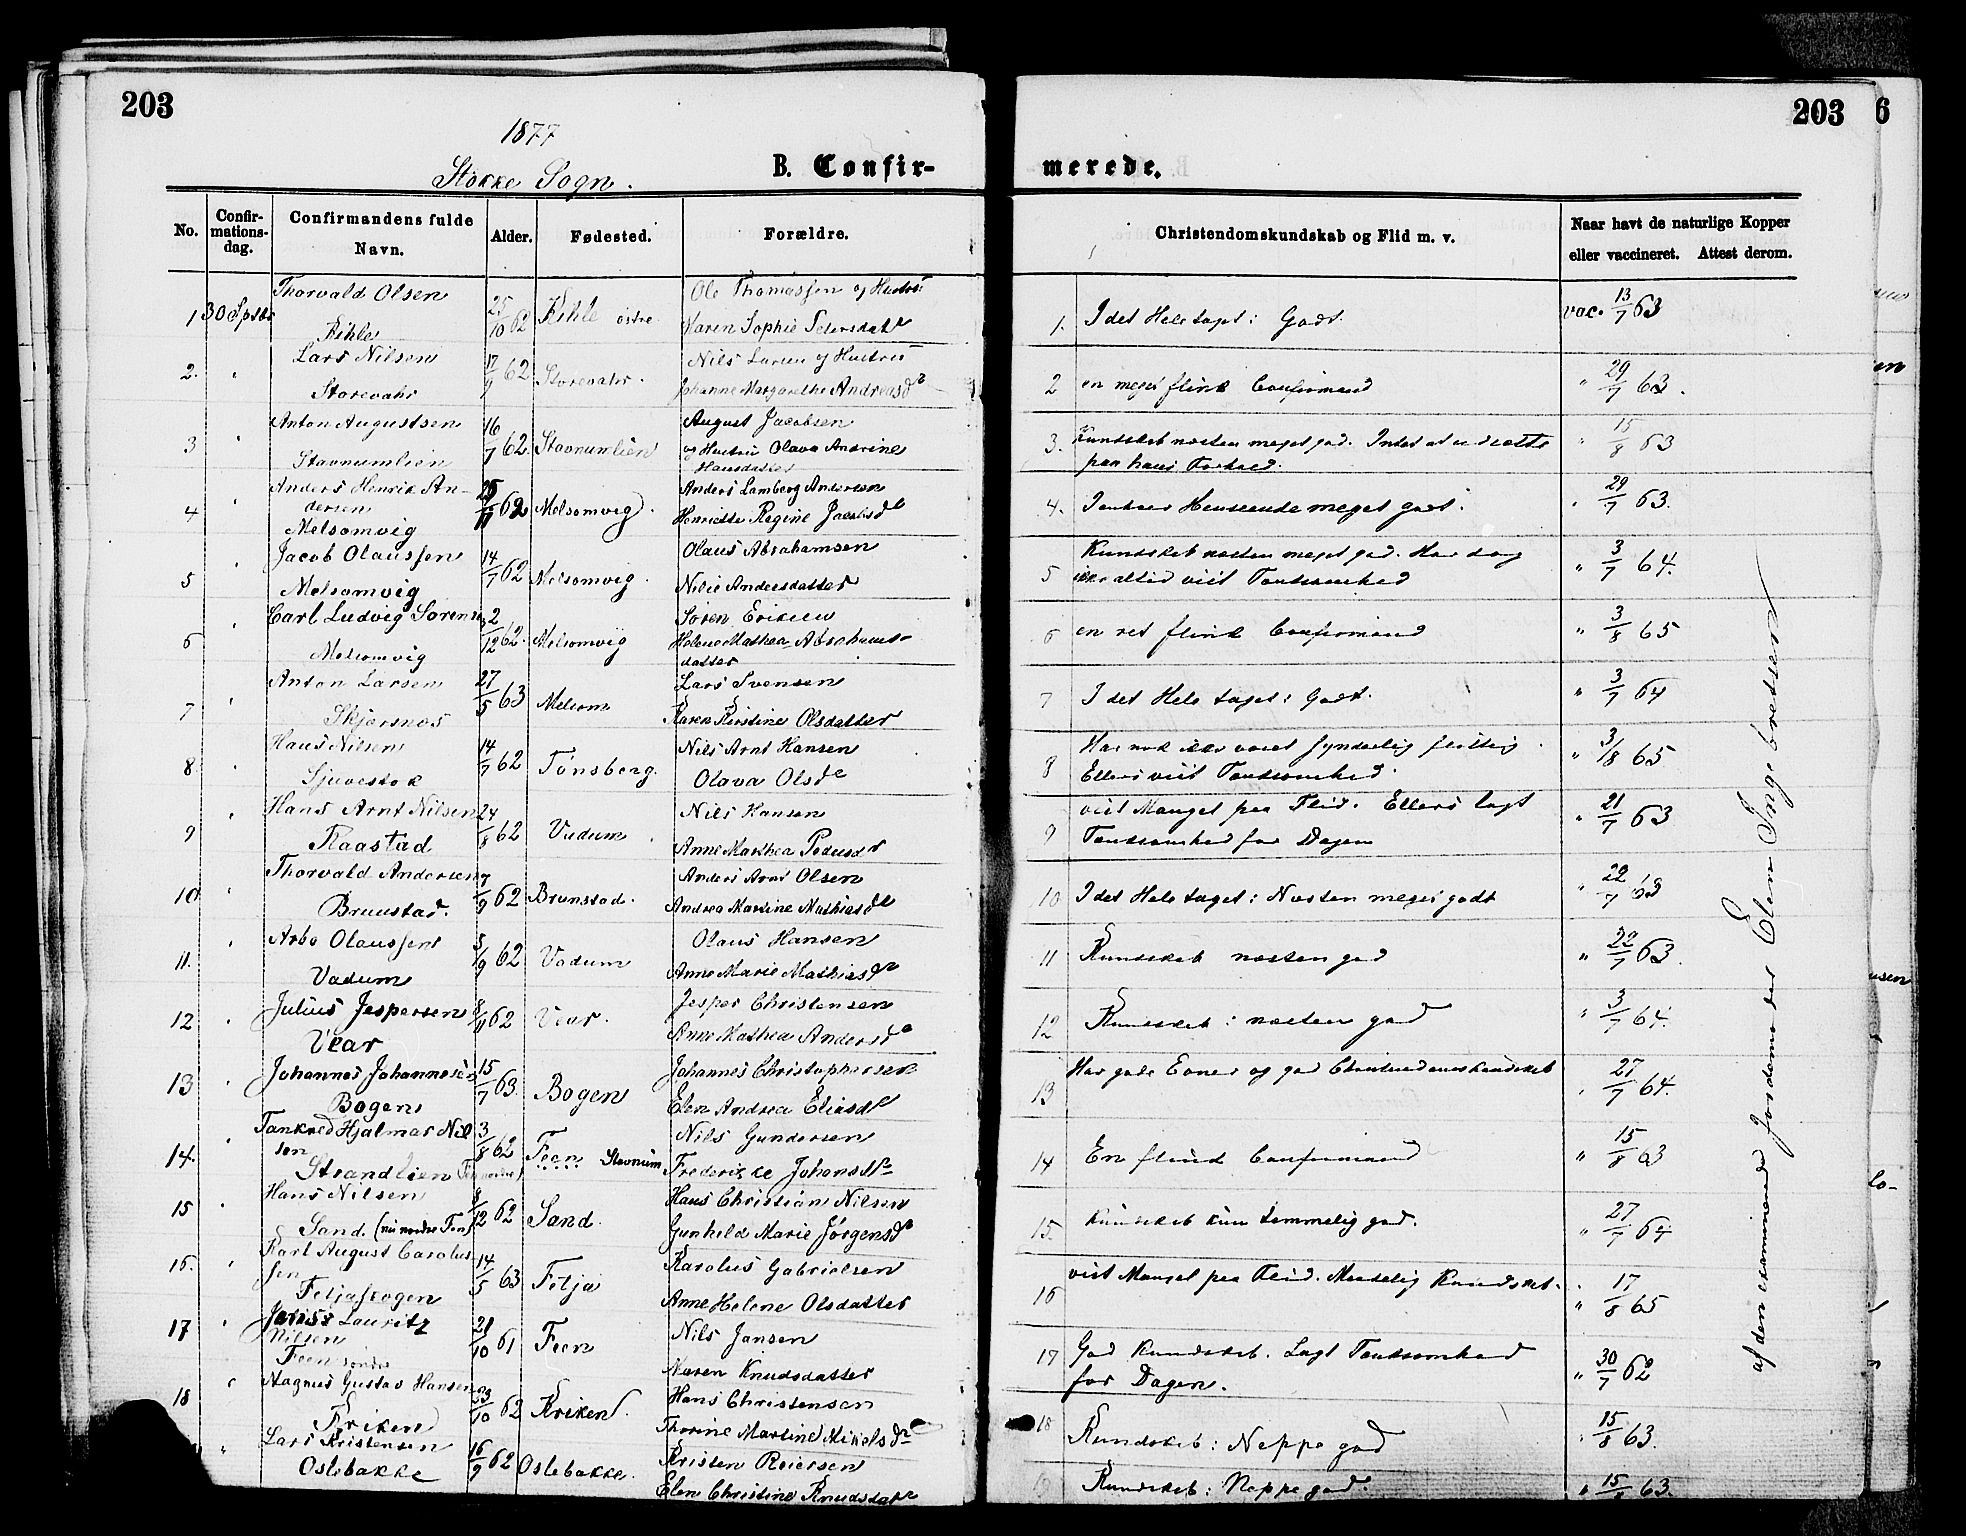 203
1877
Stokke Sogn.
B. Confir-
No.
Confir-
mations-
dag.
Confirmandens fulde
Navn.
Alder.
Fødested.
Forældre.
1 30 Sptbr Thorvald Olsen 25/10 62 østre Ole Thomassen og Hustru
Maren Sophie Pedersdatr
2. Lars Nilsen 17/9 62 Storevahr. Nils Larsen og Hustru
Storevahr Johanne Margarethe Andreasdr
3 Anton Augustsen 16/7 62 Stavnumlien August Jacobsen
Stavnumlien og Hustru Olava Andrine
Hansdatter
4 Anders Henrik An- 62 Melsomvig. Anders Lamberg Andersen
dersen
Melsomvig Henriette Regine Jacobsdr
5 Jacob Olaussen 14/7 62 Melsomvig. Olaus Abrahamsen
Melsomvig Andersdatter
6 Carl Ludvig Sørensen 2/12 62. Melsomvig Søren Eriksen
Melsomvig Helene Mathea Abrahams-
datter
7 Anton Larsen 27/5 63 Melsom Lars Svensen
Skjærsnes Karen Kirstine Olsdatter
8 Hans Nilsen 14/7 62 Tønsberg. Nils Arnt Hansen
Sjuestok Olava Olsdr
9 Hans Arnt Nilsen 24/8 62 Vadum Nils Hansen
Raastad Anne Mathea Pedersdr
10 Thorvald Andersen 7/9 62 Brunstad. Anders Arnt Olsen
Brunstad. Andrea Martine Mathiasdr
11. Arbo Olaussen 5/9 62 Vadum Olaus Hansen
Vadum Anne Marie Mathiasdr
12 Julius Jespersen 8/11 62 Vear. Jesper Christensen
Vear Anne Mathea Andersdr
13 Johannes Johannesen 15/7 63. Bogen Johannes Christophersen
Bogen Elen Andrea Eliasdr
14. Tankred Hjalmar Nil 3/8 62 Feen Stavnum Nils Gundersen
sen
Strandlien Frederikke Johansdr
15 Hans Nilsen 8/12 62 Sand. Hans Christian Nilsen
Sand. (nu nordre Feen) Gunhild Marie Jørgensdr
16. Karl August Carolus 14/5 63 Felja Karolus Gabrielsen
sen
Feljaskogen Anne Helene Olsdatter
17 Lauritz 21/10 61 Feen Nils Jansen
Nilsen
Feen søndre Maren Knudsdatter
18 Magnus Gustav Hansen 23/10 62 Kriken. Hans Christensen
Kriken Thorine Martine Mikelsdr
Lars Kristensen 16/9 62 Oslebakke. Kristen Reiersen
Oslebakke Elen Christine Knudsdatr
203
merede.
Christendomskundskab og Flid m. v.
Naar havt de naturlige Kopper
eller vaccineret. Attest derom.
1. I det Hele taget: Godt. vac. 13/7 63
2 en meget flink Confirmand " 29/7 63.
3. Kundskab næsten meget god. Intet at udsætte " 15/8 63
paa hans Forhold.
4. I enhver Henseende meget godt. " 29/7 63.
5 Kundskab næsten meget god. Har dog " 3/7 64.
ikke altid viist Tænksomhed
6 en ret flink Confirmand " 3/8 65
7 I det Hele taget: Godt. " 3/7 64
8 Har nok ikke været synderlig flittig. " 3/8 65
Ellers viist Tænksomhed.
9 viist Mangel paa Flid. Ellers lagt " 21/7 63
Tænksomhed for Dagen
10 I det Hele taget: Næsten meget godt " 22/7 63
11 Kundskab næsten god " 22/7 63.
12 Kundskab: næsten god " 3/7 64.
13 Har gode Evner og god Christendomskundskab " 27/7 64.
14 En flink Confirmand " 15/8 63
15. Kundskab kun temmelig god. " 27/7 64
16 viist Mangel paa Flid. Maadelig Kundskab. " 17/8 65
17 God Kundskab. Lagt Tænksomhed " 30/7 62
for Dagen.
18 Kundskab: Neppe god " 15/8 63.
Kundskab: Neppe god. " 15/8 63.
af den examinerede Jordemoder Elen Ingebretsen
6